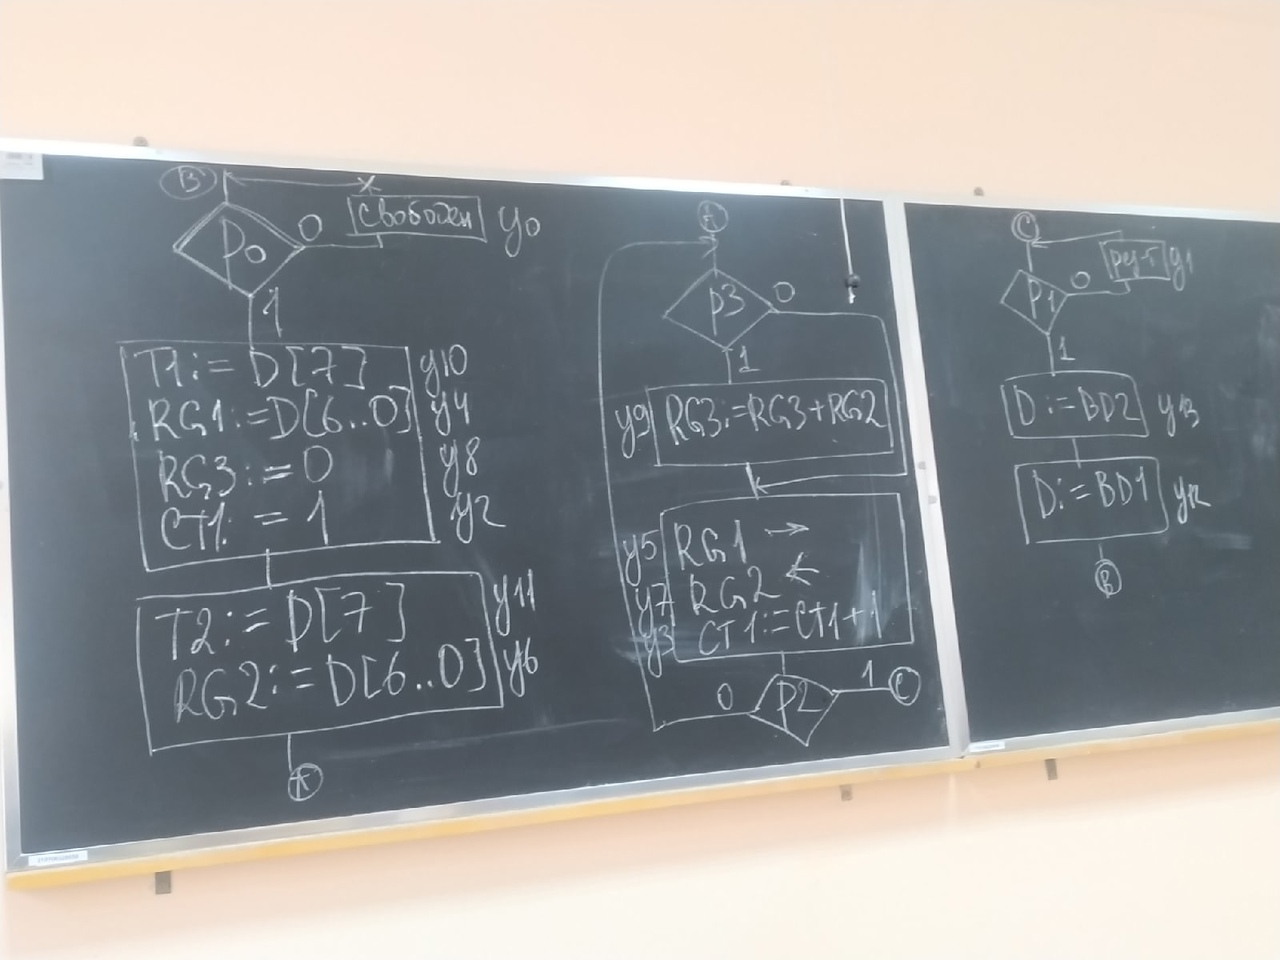 B
P0
0
свободен y0
1
T1:= D[7] y10
RG1:=D[6..0] y4
RG3:=0 y8
CT1:=1 y2
T2:=D[7] y11
RG2:=D[6..0] y6
A
A
P3
0
1
y9 RG3:=RG3+RG2
y5 RG1 →
y7 RG2 ←
y3 CT1:=CT1+1
0 P2 1 C
C
P1
0
рез-т y1
1
D:=BD2 y13
D:=BD1 y12
B